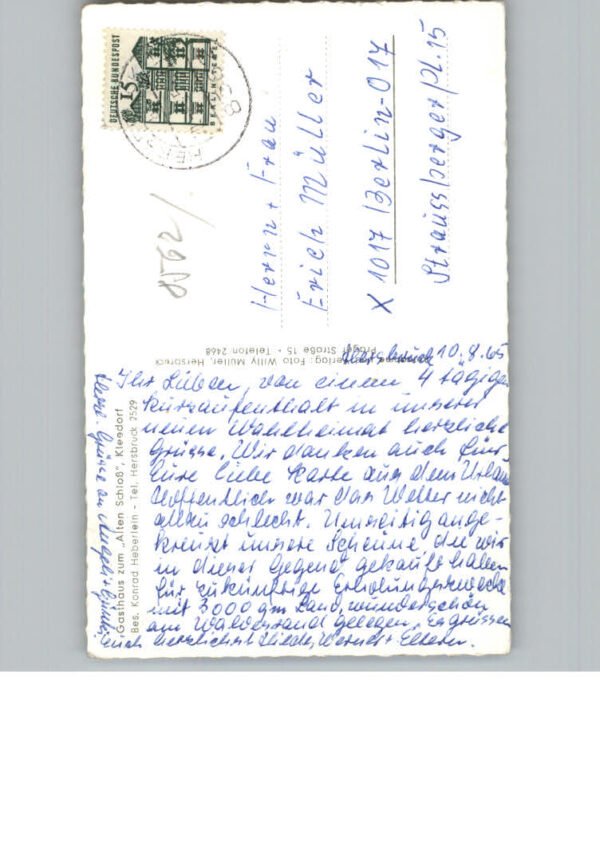 DEUTSCHE BUNDESPOST
15
8562/
Herrn + Frau
Erich Müller
X 1017 Berlin-O17
Straussberger Pl. 15
Verlag: Foto Willy Müller, Hersbruck
Prager Straße 15 • Telefon 2468
Hersbruck 10.8.65
Ihr Lieben, von einem 4 tägigen
Kurzaufenthalt in unserer
neuen Wahlheimat herzliche
Grüsse. Wir danken auch für
Eure liebe Karte aus dem Urlaub
Hoffentlich war das Wetter nicht
allzu schlecht. Umseitig ange-
kreuzt unsere Scheune, die wir
in dieser Gegend gekauft haben
für zukünftige Erholungszwecke
mit 3000 qm Land, wunderschön
am Waldesrand gelegen. Es grüssen
Euch herzlichst Werner + Eltern.
Herzl. Grüsse an
Gasthaus zum „Alten Schloß“, Kleedorf
Bes. Konrad Heberlein - Tel. Hersbruck 2529